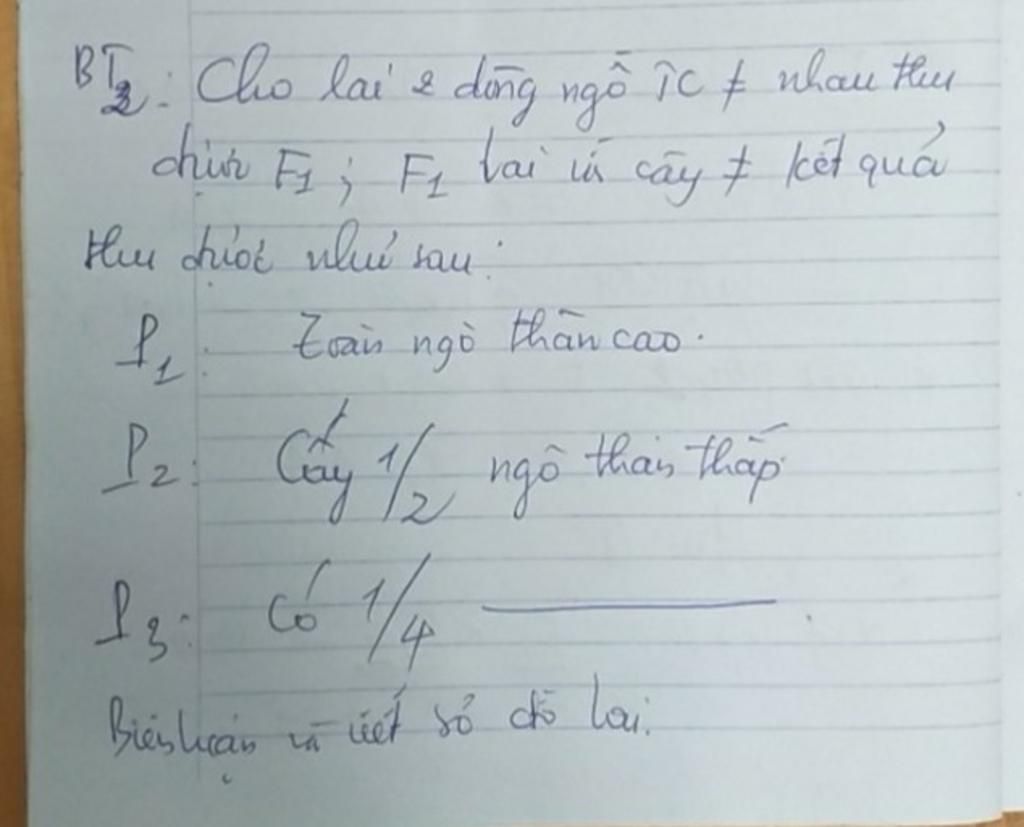 BT2: Cho lai 2 dòng ngô TC ≠ nhau thu
được F1; F1 lai với cây ≠ kết quả
thu được như sau:
P1: toàn ngô thân cao.
P2: Cây 1/2 ngô thân thấp
P3: Có 1/4 ———.
Biện luận và viết sơ đồ lai.